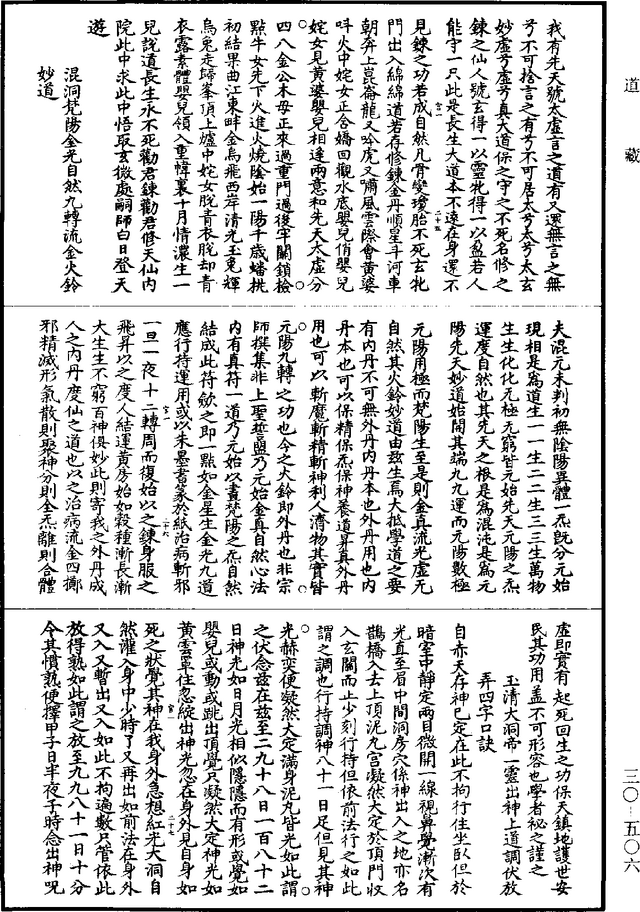 道藏
我有先天號太虛言之道有又還無言之無
兮不可捨言之有兮不可居太兮太兮太玄
妙虛兮虛兮真大道保之守之不死名修之
鍊之仙人號玄得一以靈牝得一以盈若人
能守一只此是長生大道本不遠在身還不
見鍊之功若成自然凡骨變瓊胎不死玄牝
門出入綿綿道若存修鍊金丹順星斗河車
朝奔上崑崙龍又吟虎又嘯風雲際會黃婆
叫火中姹女正含嬌回觀水底嬰兒俏嬰兒
姹女見黃婆嬰兒相逢兩意和先天太虛分
四八金公木母正來過重門過後牢關鎖檢
點牛女先下火進火燒陰始一陽千歲蟠桃
初結果曲江東畔金烏飛西岸清光玉兎輝
烏兎走歸峯頂上爐中姹女脫青衣脫却青
衣露素體嬰兒領入重幃裏十月情濃生一
兒說道長生永不死勸君鍊勸君修天仙內
院此中求此中悟取玄微處嗣師白日登天
遊
混洞梵陽金光自然九轉流金火鈴
妙道
夫混元未判初無陰陽異體一炁既分元始
現相是為道生一一生二二生三三生萬物
生生化化元極无窮皆元始先天元陽之炁
運度自然也其先天之根是為混沌是為元
陽先天妙道始開其端九九運而元陽數極
元陽用極而梵陽生至是則金真流光虛无
自然其火鈴妙道由茲生焉大抵學道之要
有內丹不可無外丹內丹本也外丹用也內
丹本也可以保精保炁保神養道昇真外丹
用也可以斬魔斬精斬神利人濟物其實皆
元陽九轉之功也今之火鈴即外丹也非宗
師撰集非上聖誓盟乃元始金真自然心法
內有真符一道乃元始以畫梵陽之炁自然
結成此符歛之即一點如金星生金光九道
應行持運用或以朱墨書篆於紙治病斬邪
一旦一夜十二轉周而復始以之鍊身服之
飛昇以之度人結運黃房始如穀種漸長漸
大生生不窮百神俱妙此則寄我之外丹成
人之內丹度仙之道也以之治病流金四擲
邪精滅形氣散則聚神分則全炁離則合體
虛即實有起死回生之功保天鎮地護世安
民其功用盖不可形容也學者祕之謹之
玉清大洞帝一靈出神上道調伏放
弄四字口訣
自亦天存神已定在此不拘行住坐臥但於
暗室中靜定兩目微開一線視鼻覺漸次有
光直至眉中間洞房穴係神出入之地亦名
鵲橋入去上頂泥九宮凝然大定於頂門收
入玄關而止少刻行持但依前法行之如此
謂之調也行持調神八十一日足但見其神
光赫奕便凝然大定滿身泥丸皆光如此謂
之伏念茲在茲至二九十八日一百八十二
日神光如日月光相似隱隱而有形或覺如
嬰兒或動或跳出頂覺只凝然大定神光如
黃雲罩住忽綻出神光忽在身外見自身如
死之狀覺其神在我身外急想紅光大洞自
然灌入身中少時了又再出如前法在身外
又入又暫出又入如此不拘遍數只管依此
放得熟如此謂之放至九九八十一日十分
令其慣熟便擇甲子日半夜子時念出神呪
三〇·五〇六